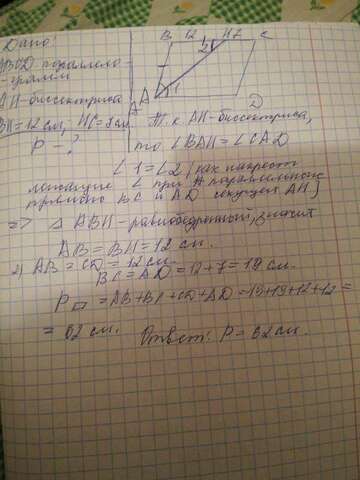 Дано:
ABCD параллело-
грамм
AH-биссектриса
BH=12 см, HC=7 см
P - ?
B 12 H 7 C
2
A 1
D
Т к AH-биссектриса,
то ∠BAH = ∠CAD
∠1=∠2 (как накрест
лежащие ∠ при параллельных
прямых BC и AD секущей AH)
=> △ ABH - равнобедренный, значит
AB = BH = 12 см.
2) AB = CD = 12 см.
BC = AD = 12 + 7 = 19 см.
P▱ = AB + BC + CD + AD = 19+19+12+12 =
= 62 см. Ответ: P = 62 см.